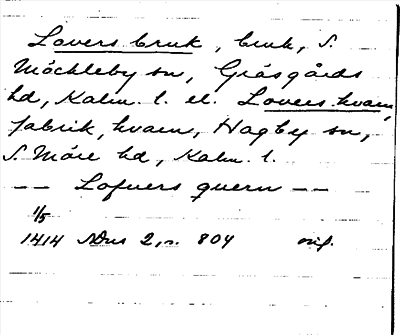 Lovers bruk, bruk, S.
Möckleby sn, Gräsgårds
hd, Kalm. l. el. Lovers kvarn,
fabrik, kvarn, Hagby sn,
S. Möre hd, Kalm. l.
-- Lofuers quern --
1/5
1414 SDns 2, n. 804 orig.